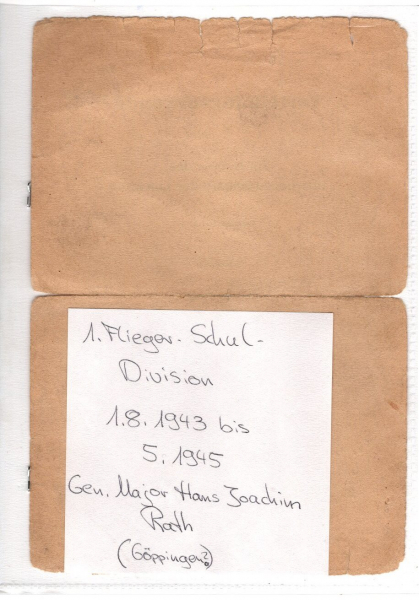 1. Flieger-Schul-
Division
1.8.1943 bis
5.1945
Gen. Major Hans Joachim
Rath
(Göppingen?)